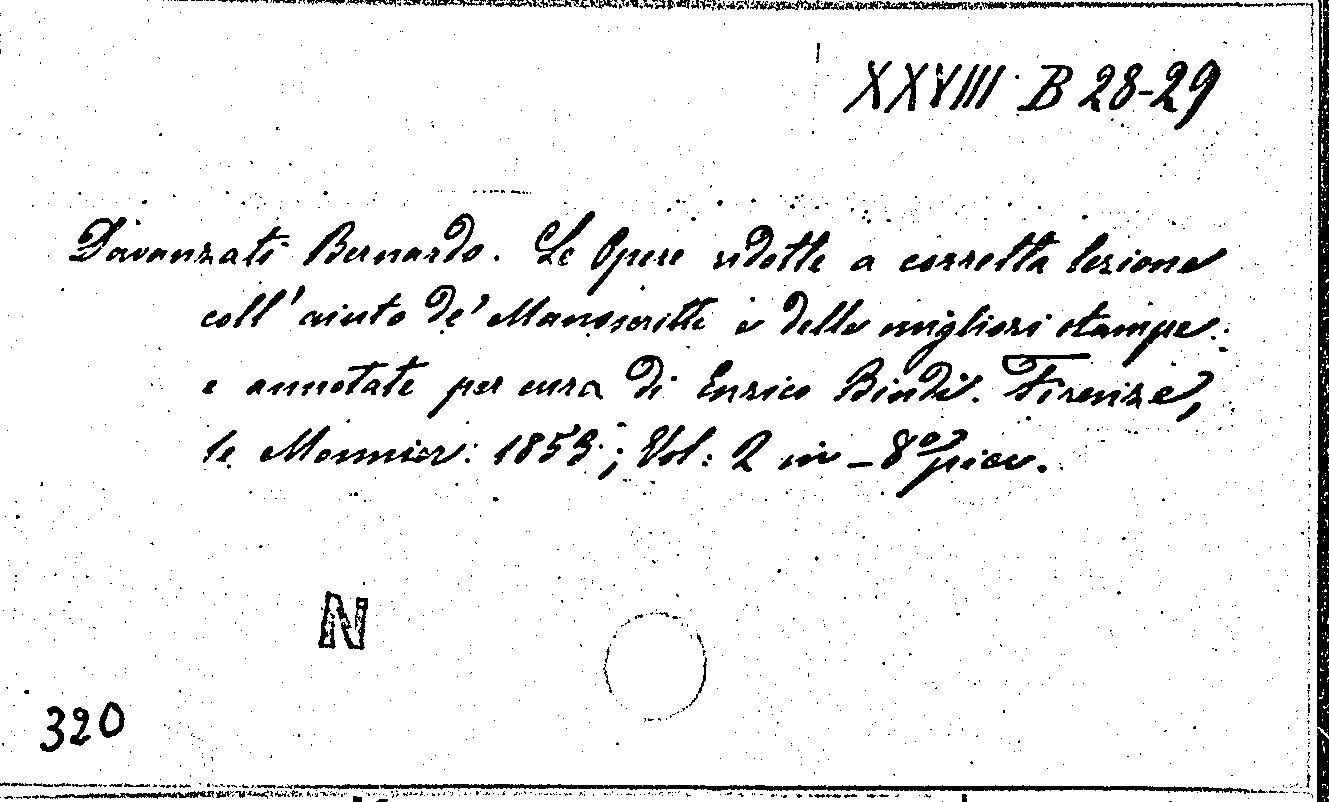 XXVIII B 28-29
Davanzati Bernardo. Le Opere ridotte a corretta lezione
coll'aiuto de' Manoscritti e delle migliori stampe
e annotate per cura di Enrico Bindi. Firenze,
le Monnier. 1853; Vol: 2 in-8º picc.
N
320